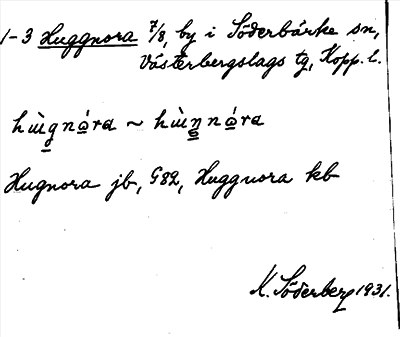 1-3 Huggnora 7/8, by i Söderbärke sn,
Västerbergslags tg, Kopp. l.
hùgnára ~ hùŋnára
Hugnora jb, G82, Huggnora kb
K. Söderberg 1931.